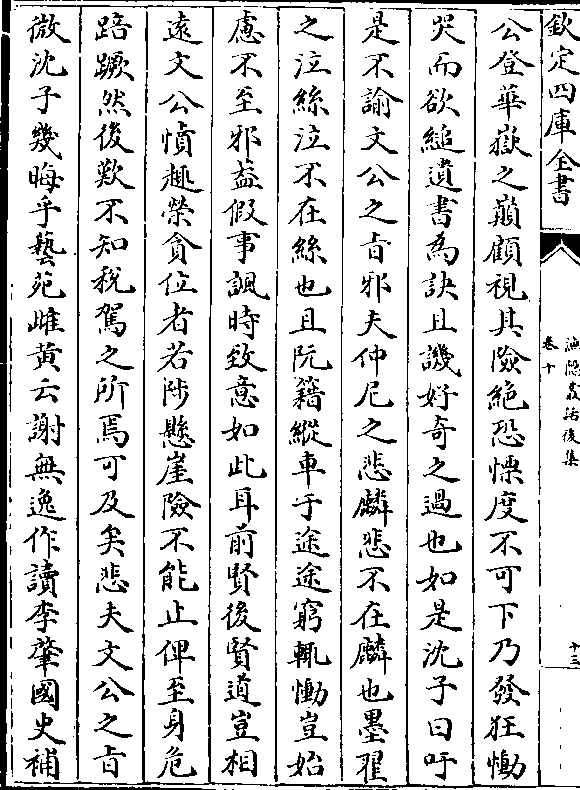 欽定四庫全書
漁隱叢話後集
卷十
十三
公登華嶽之巔顧視其險絶恐慄度不可下乃發狂慟
哭而欲縋遺書為訣且譏好奇之過也如是沈子曰吁
是不諭文公之㫖邪夫仲尼之悲麟悲不在麟也墨翟
之泣絲泣不在絲也且阮籍縱車于途途窮輒慟豈始
慮不至邪葢假事諷時致意如此耳前賢後賢道豈相
遠文公憤趣榮貪位者若陟懸崖險不能止俾至身危
踣蹶然後歎不知稅駕之所焉可及矣悲夫文公之㫖
微沈子幾晦乎藝苑雌黄云謝無逸作讀李肇國史補